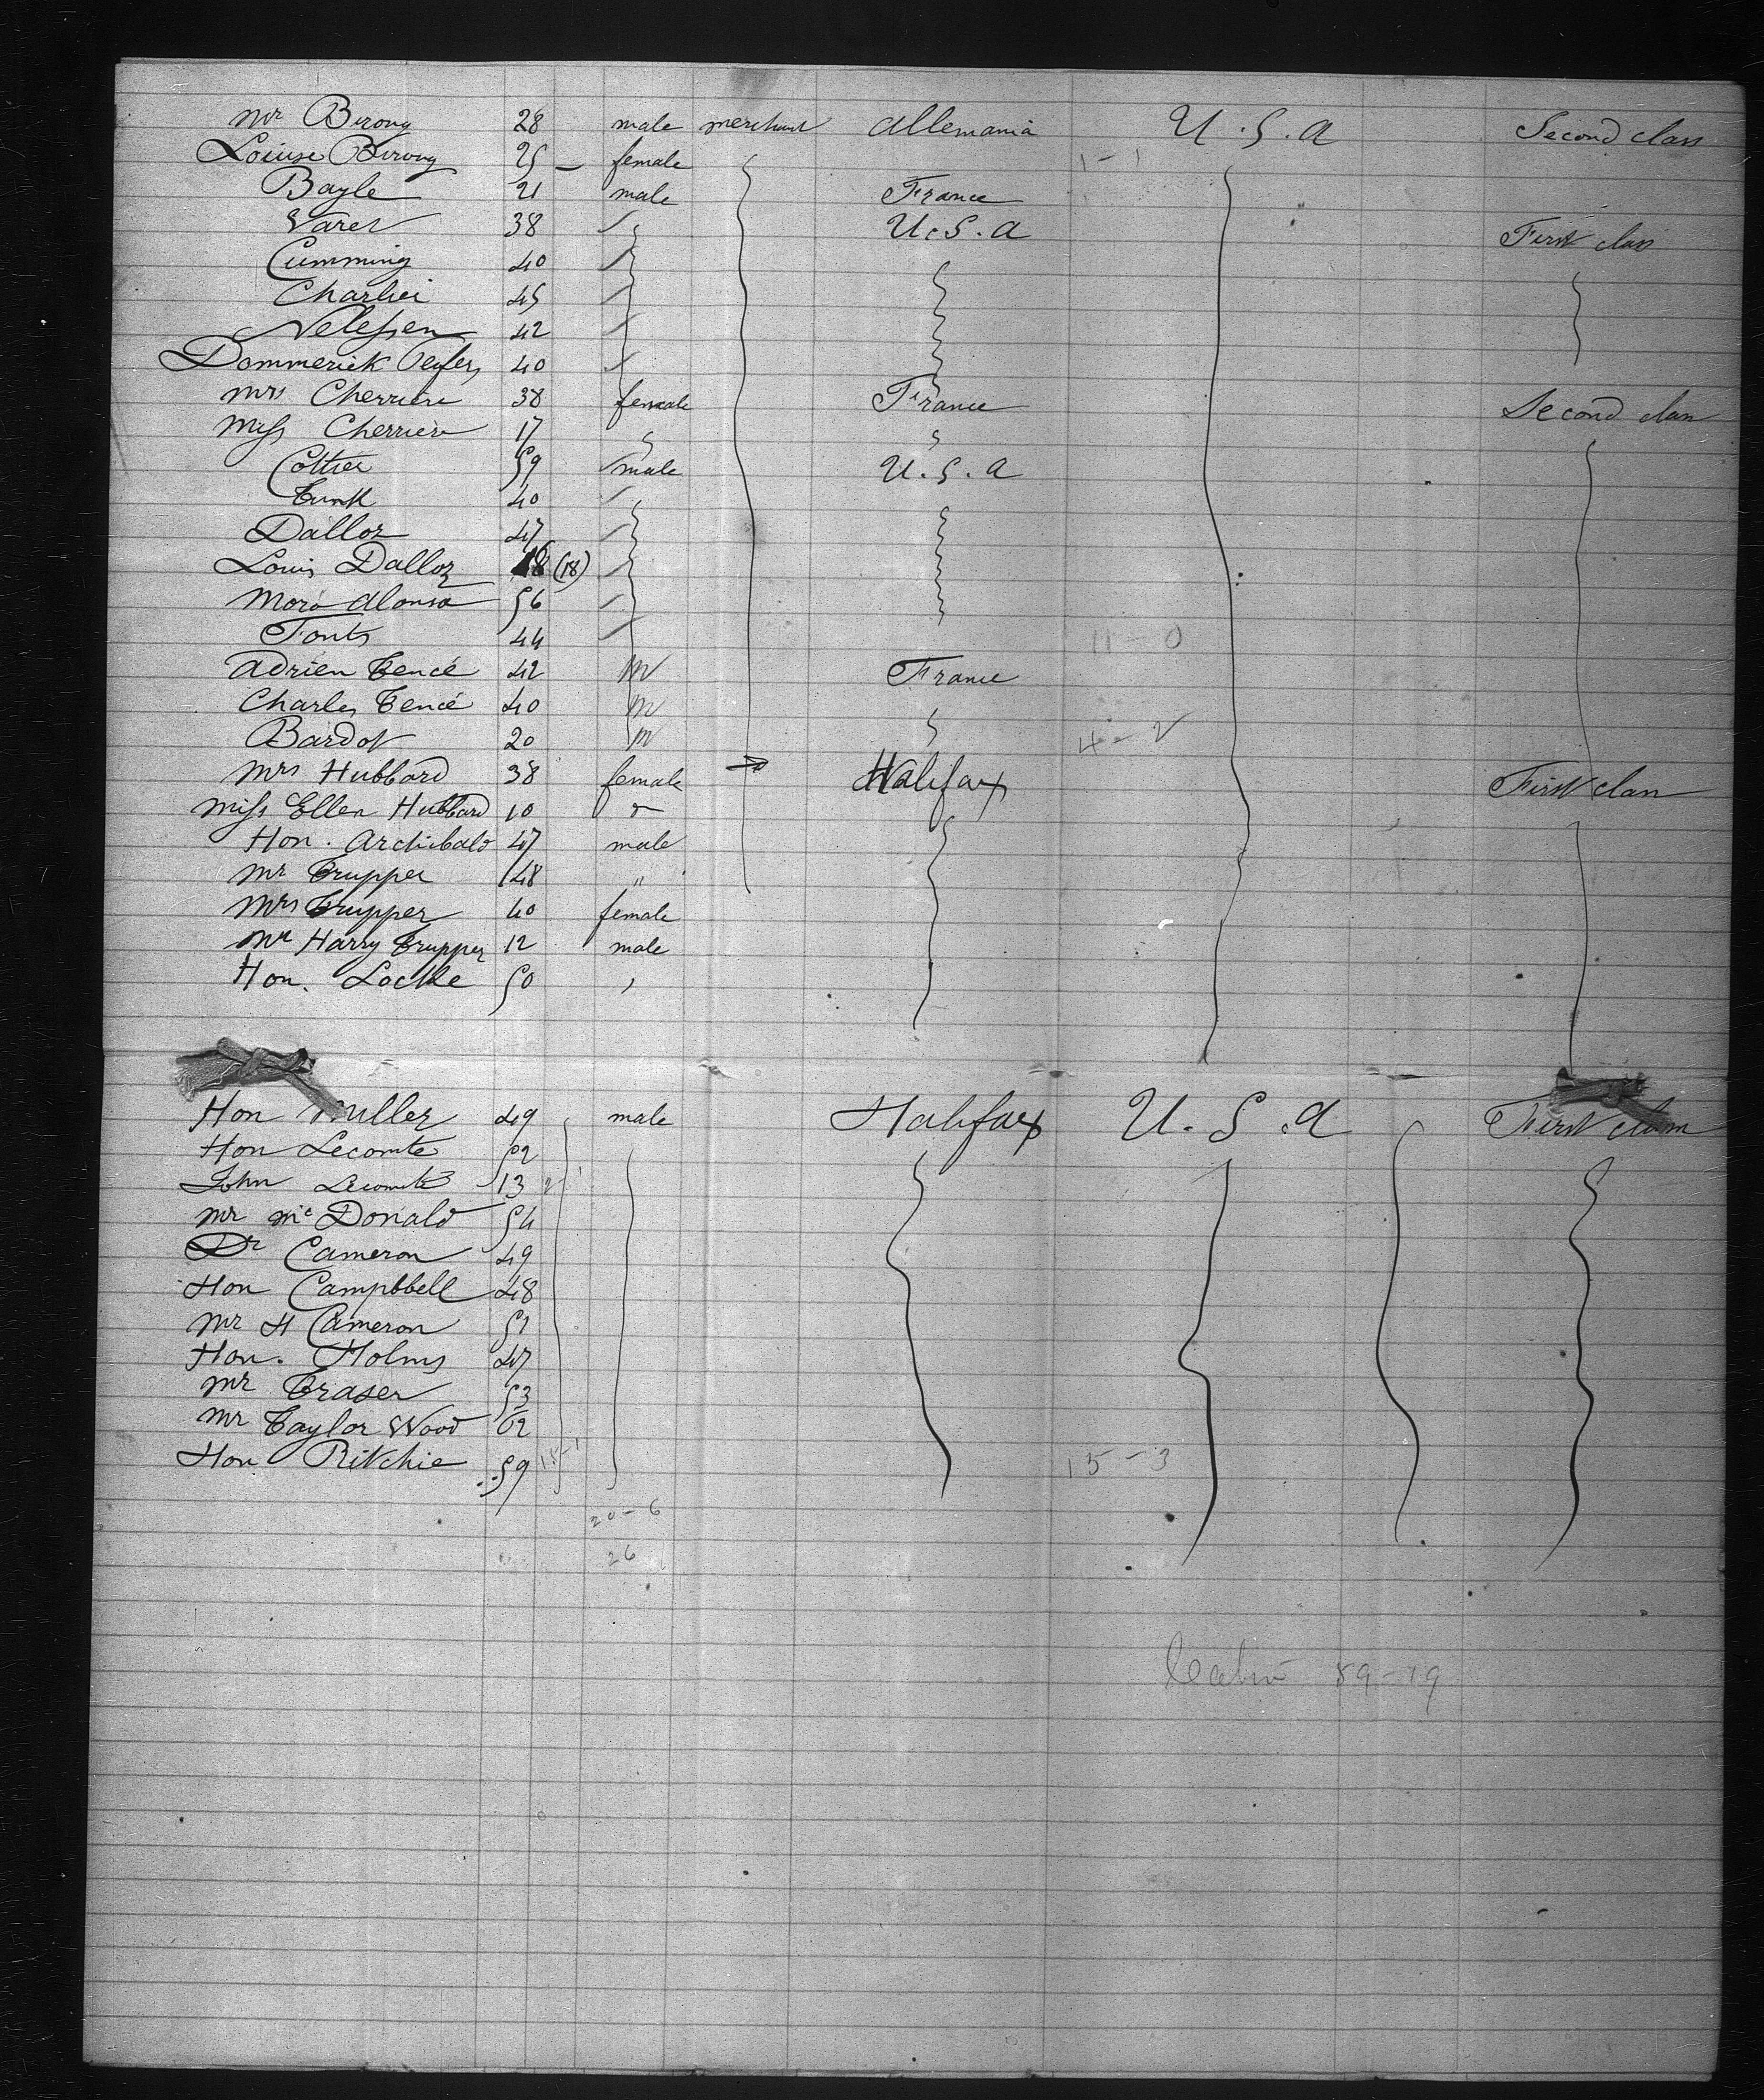 Mr Birong 28 male merchant Allemania U.S.A Second class
Louise Birong 25 — female 1-1
Bayle 21 male France
Varet 38 U.S.A First class
Cumming 40
Charlici 45
Nelessen 42
Dommerick 40
Mrs Cherrière 38 female France Second class
Miss Cherrière 17
Cottier 59 male U.S.A
Tunk 40
Dalloz 47
Louis Dalloz 18 (18)
Mora Alonso 56
Fonts 44 11-0
Adrien Tencé 42 M France
Charles Tencé 40 M
Bardot 20 M 4-2
Mrs Hubbard 38 female Halifax First class
Miss Ellen Hubbard 10
Hon. Archibald 47 male
Mr Trupper 48 "
Mrs Trupper 40 female
Mr Harry Trupper 12 male
Hon. Locke 50
Hon Miller 49 male Halifax U.S.A First class
Hon Lecomte 52
John Lecomte 13
Mr McDonald 54
Dr Cameron 49
Hon Campbbell 48
Mr H Cameron 51
Hon. Holms 47
Mr Fraser 53
Mr Taylor Wood 62
Hon Ritchie 59 15-1 15-3
20-6
26
Cabin 59-19